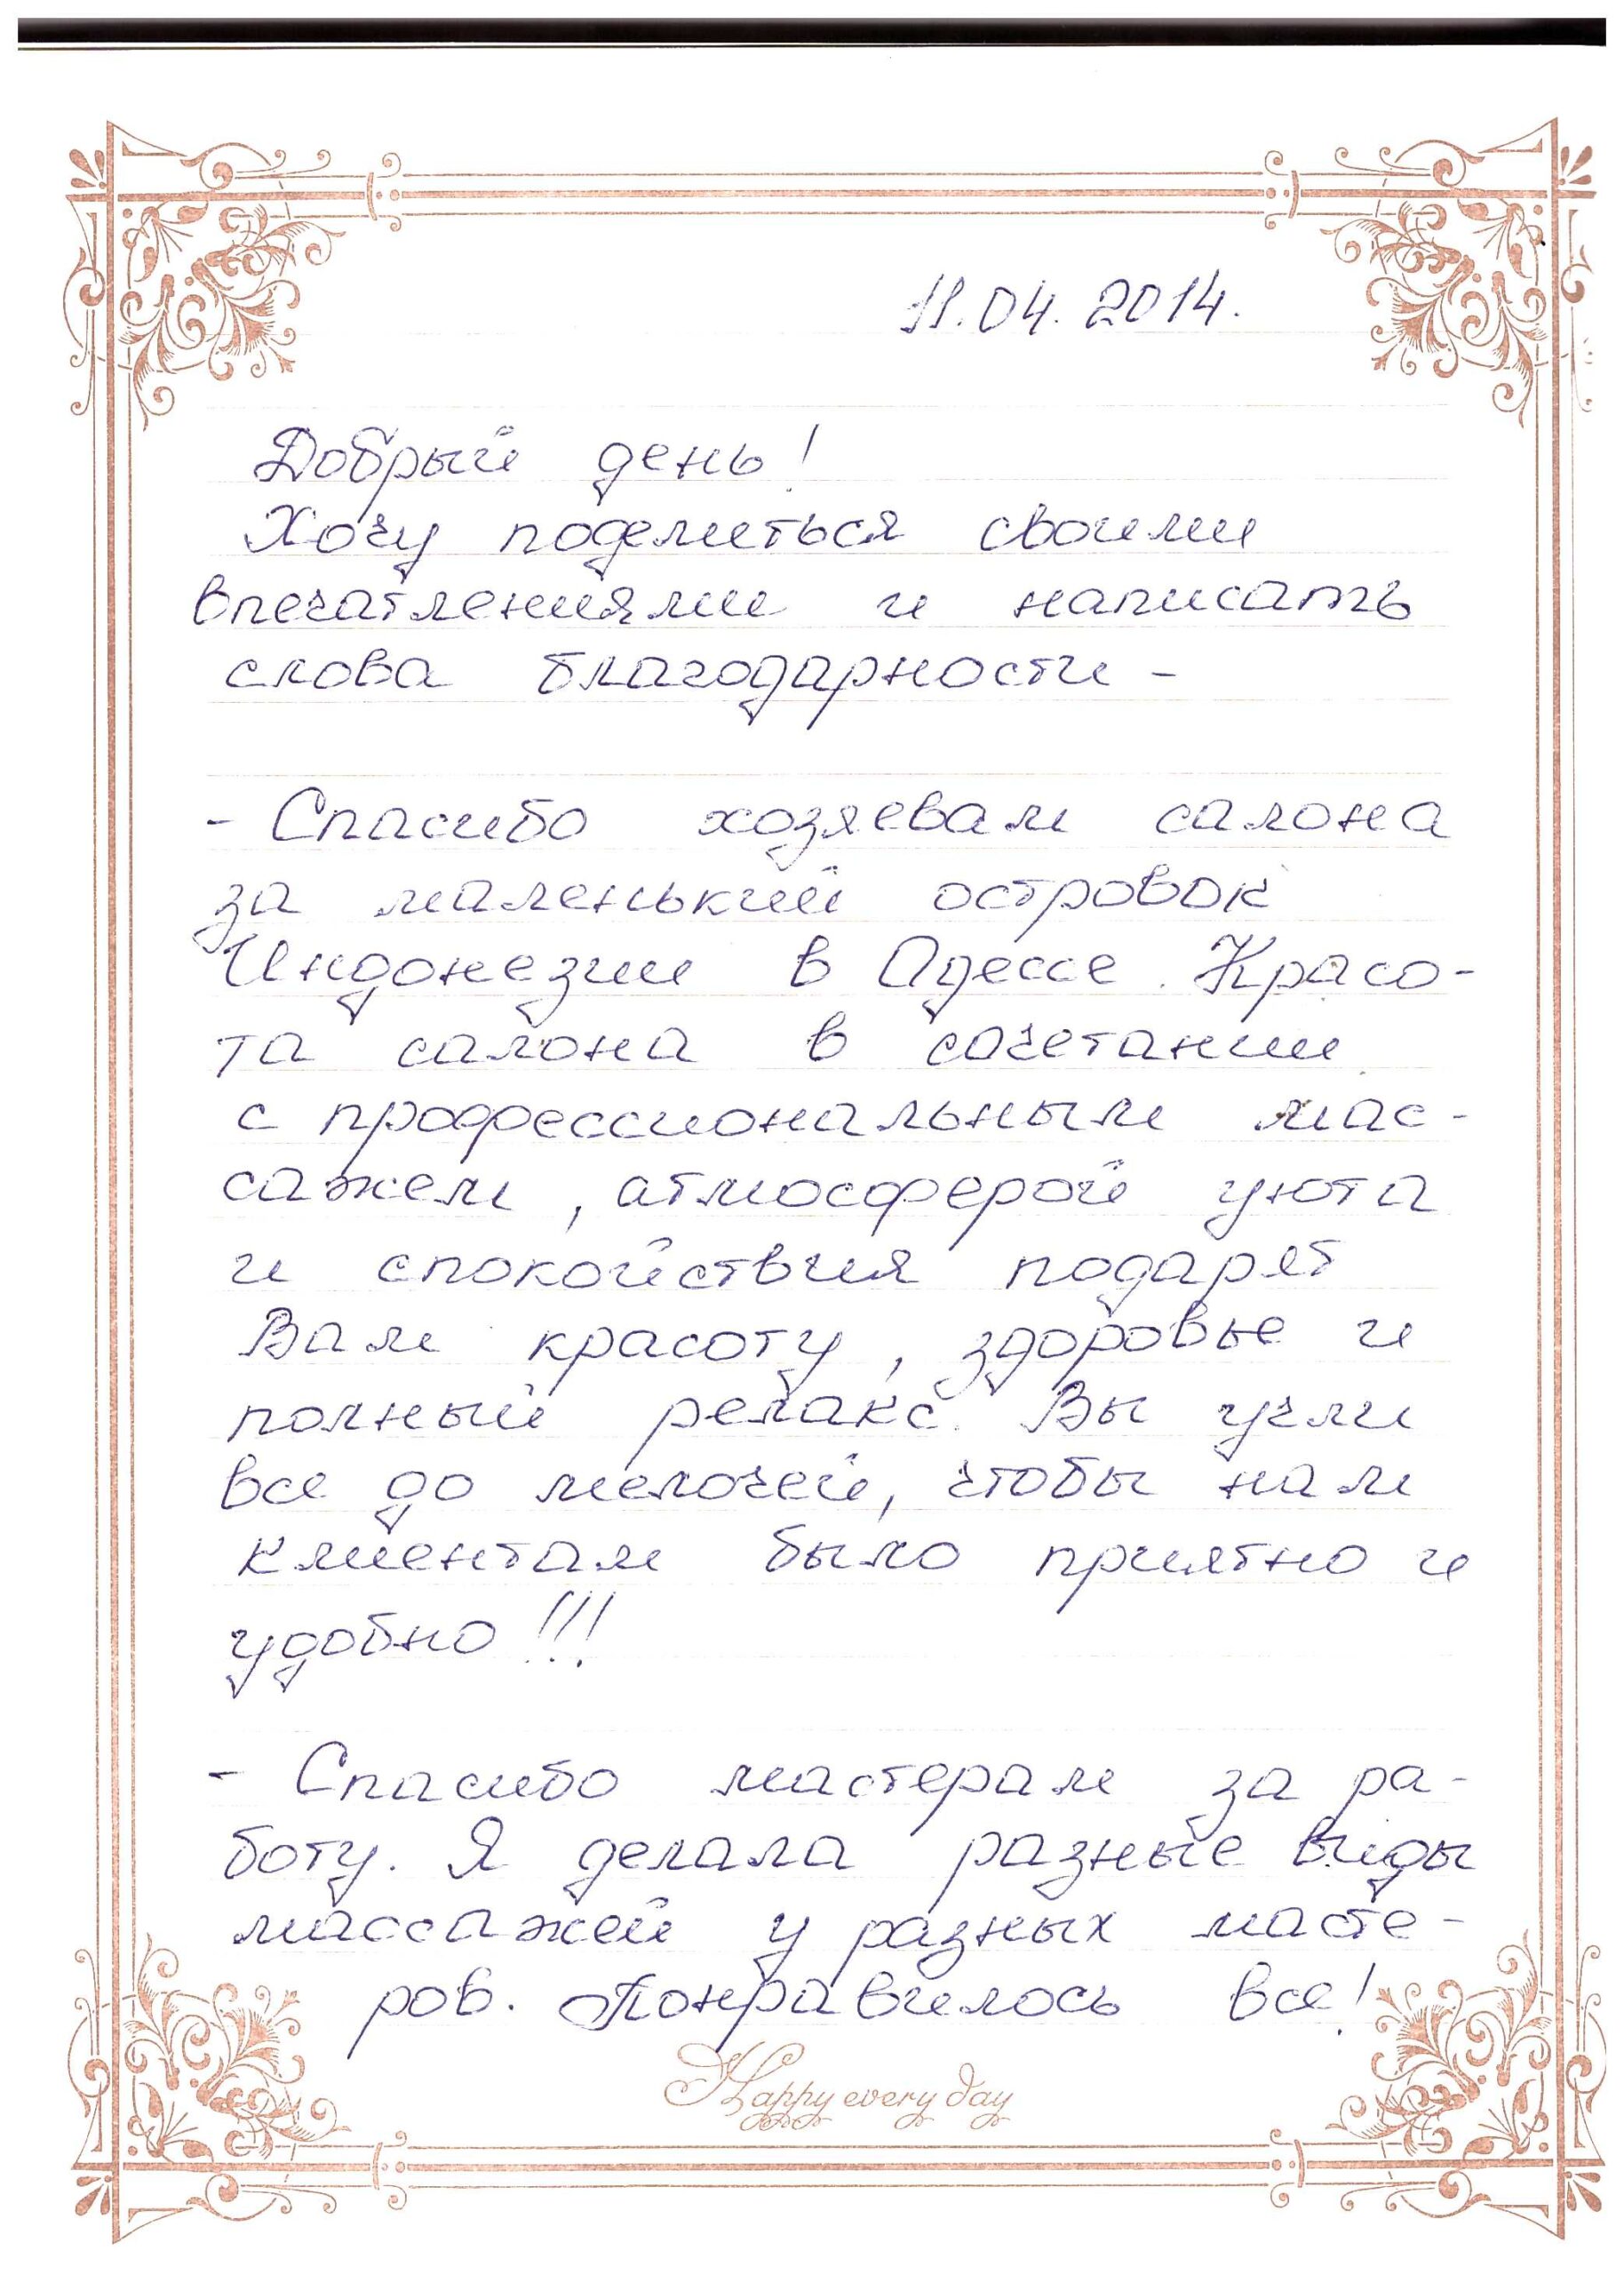 11.04.2014.
Добрый день!
Хочу поделиться своими
впечатлениями и написать
слова благодарности -
- Спасибо хозяевам салона
за маленький островок
Индонезии в Одессе. Красо-
та салона в сочетании
с профессиональным мас-
сажем, атмосферой уюта
и спокойствия подарят
Вам красоту, здоровье и
полный релакс. Вы учли
все до мелочей, чтобы нам
клиентам было приятно и
удобно!!!
- Спасибо мастерам за ра-
боту. Я делала разные виды
массажей у разных масте-
ров. Понравилось все!
Happy every day